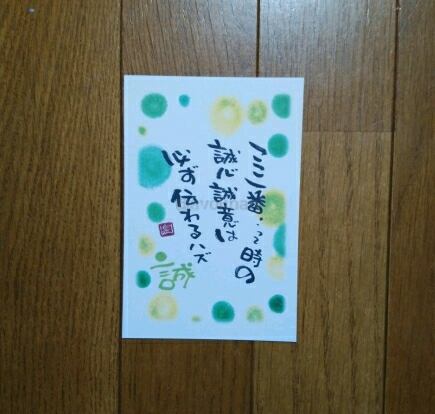 ここ一番…って時の
誠心誠意は
必ず伝わるハズ
誠